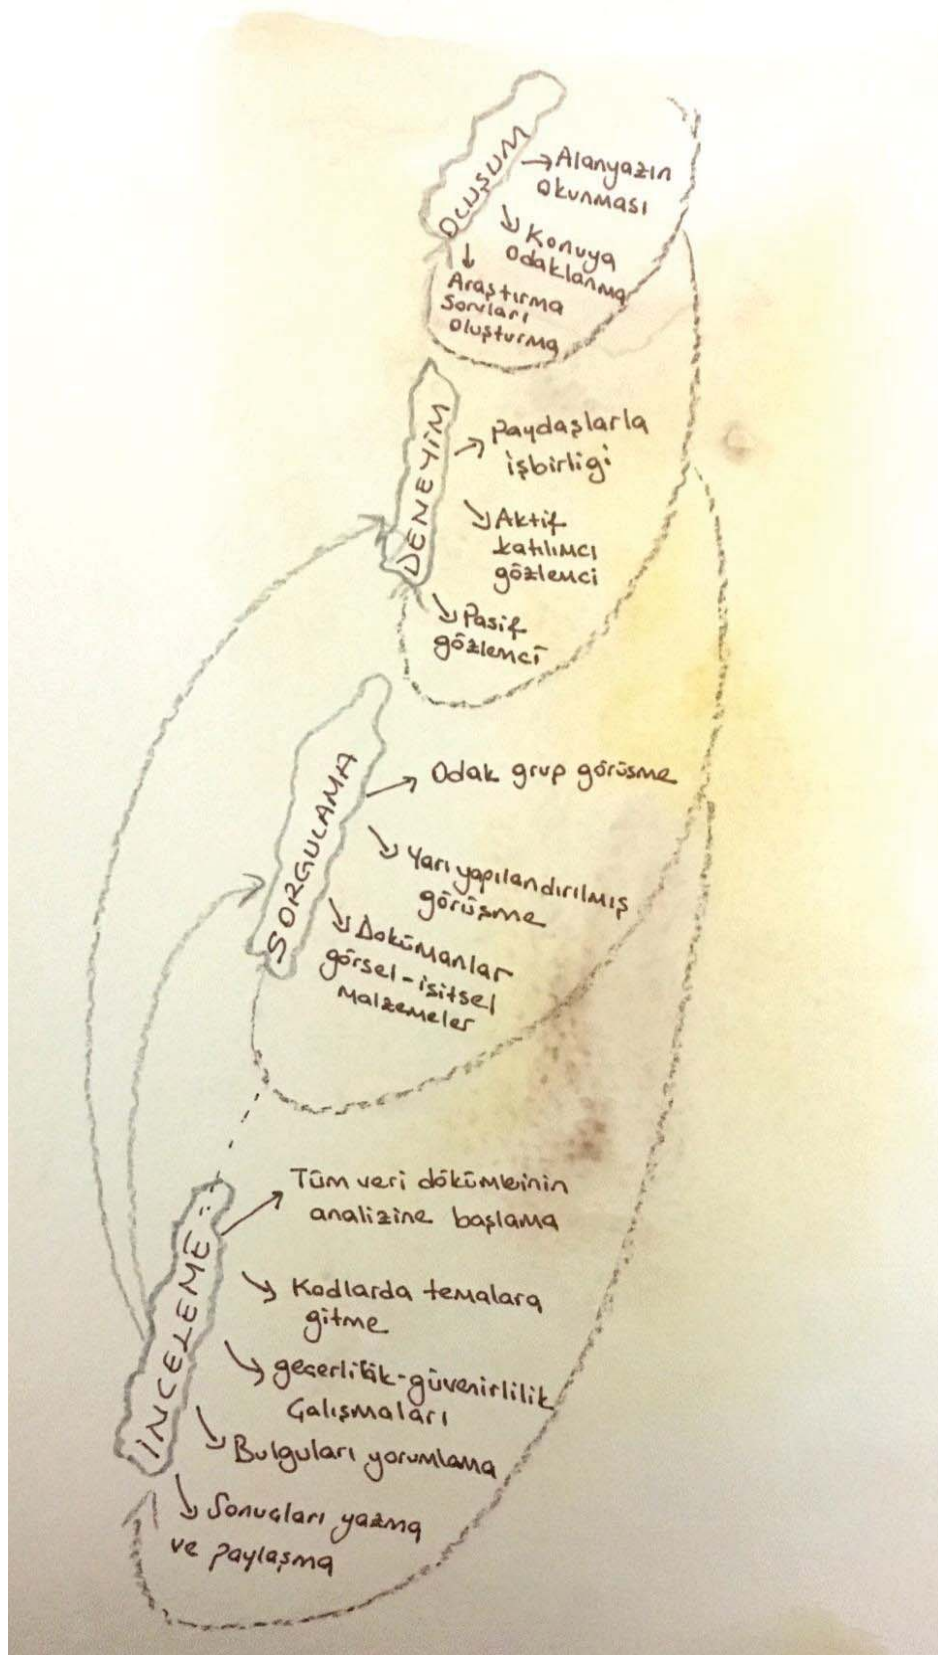 OLUŞUM
Alanyazın
Okunması
Konuya
Odaklanma
Araştırma
Soruları
Oluşturma
DENEYİM
Paydaşlarla
işbirliği
Aktif
katılımcı
gözlemci
Pasif
gözlemci
SORGULAMA
Odak grup görüşme
Yarı yapılandırılmış
görüşme
Dokümanlar
görsel-işitsel
Malzemeler
İNCELEME
Tüm veri dökümleinin
analizine başlama
Kodlarda temalara
gitme
geçerlilik-güvenirlilik
Çalışmaları
Bulguları yorumlama
Sonuçları yazma
ve paylaşma